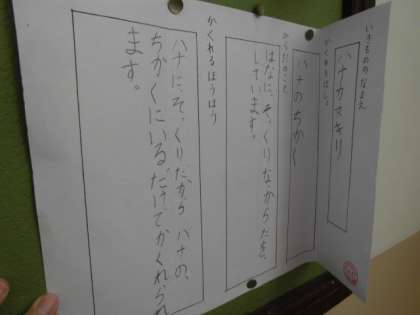 いきもののなまえ
ハナカマキリ
かくれるばしょ
ハナのちかく
からだのこと
はなに、そっくりなからだを、
しています。
かくれるほうほう
ハナに、そっくりだから ハナの、
ちかくにいるだけでかくれられ
ます。